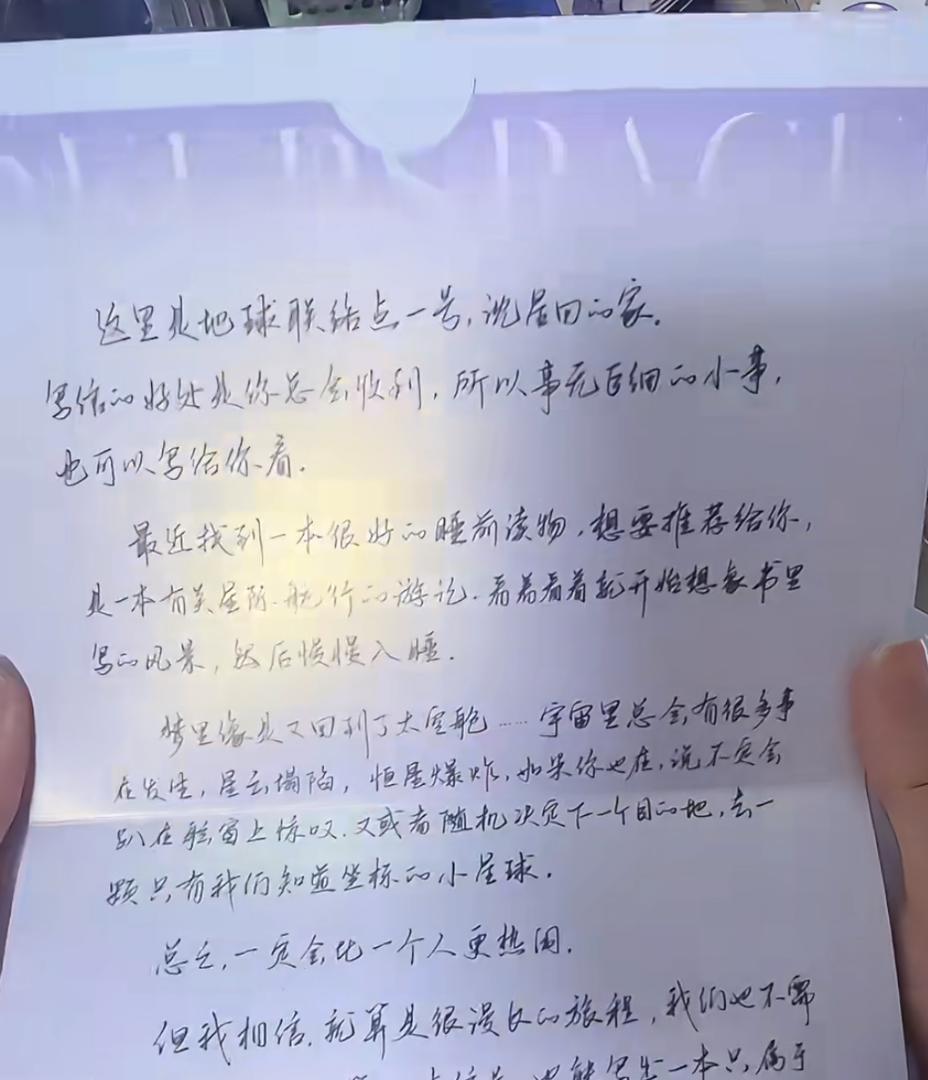 这里是地球联结点一号,沈星回的家。
写信的好处是你总会收到,所以事无巨细的小事,
也可以写给你看。
最近找到一本很好的睡前读物,想要推荐给你,
是一本有关星际航行的游记.看着看着就开始想象书里
写的风景,然后慢慢入睡.
梦里像是又回到了太空舱……宇宙里总会有很多事
在发生,星云塌陷,恒星爆炸,如果你也在,说不定会
趴在舷窗上惊叹.又或者随机决定下一个目的地,去一
颗只有我们知道坐标的小星球.
总之,一定会比一个人更热闹.
但我相信.就算是很漫长的旅程,我们也不需
也能写出一本只属于